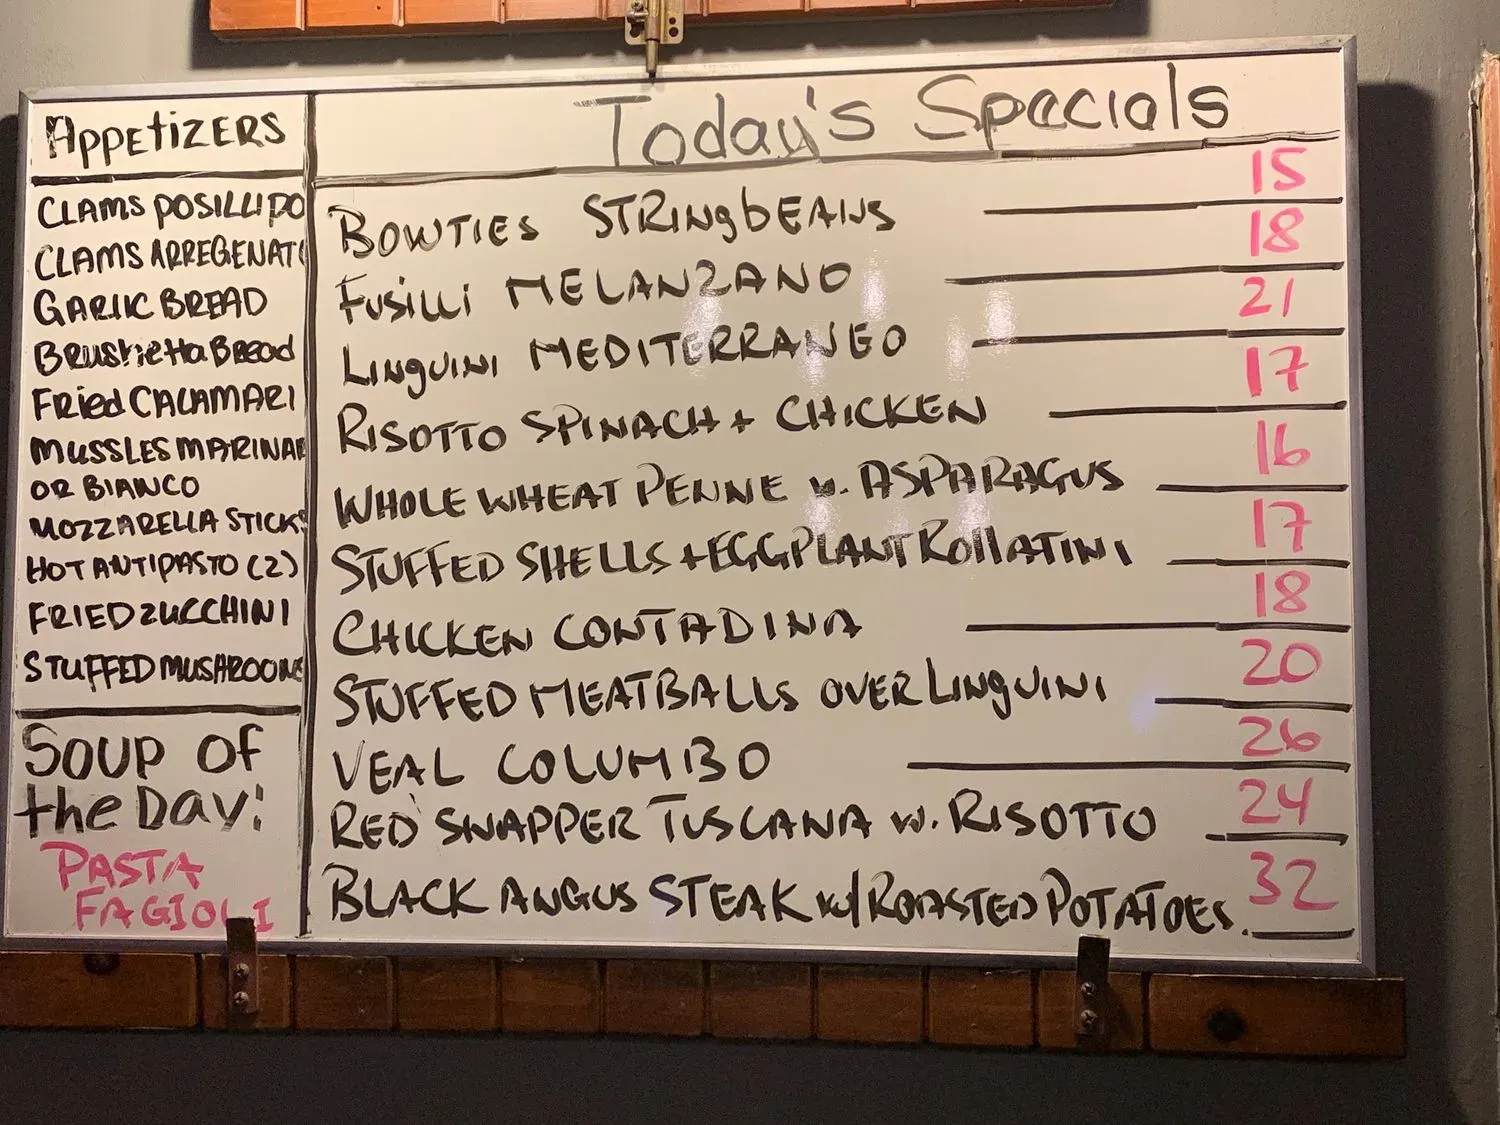 Appetizers
CLAMS POSILLIPO
CLAMS ARREGENATI
GARLIC BREAD
Brushietta Bread
FRied CALAMARI
MUSSLES MARINAR
OR BIANCO
MOZZARELLA STICKS
HOT ANTIPASTO (2)
FRIED ZUCCHINI
STUFFED MUSHROOMS
SOUP OF
the DAY:
PASTA
FAGIOLI
Today's Specials
BOWTIES STRINgbEANS 15
FUSILLI MELANZANO 18
LINGUINI MEDITERRANEO 21
RISOTTO SPINACH + CHICKEN 17
WHOLE WHEAT PENNE W. ASPARAGUS 16
STUFFED SHELLS + EGGPLANT ROllATINI 17
CHICKEN CONTADINA 18
STUFFED MEATBALLS OVER LINGUINI 20
VEAL COLUMBO 26
RED SNAPPER TUSCANA W. RISOTTO 24
BLACK ANGUS STEAK W/ ROASTED POTATOES. 32